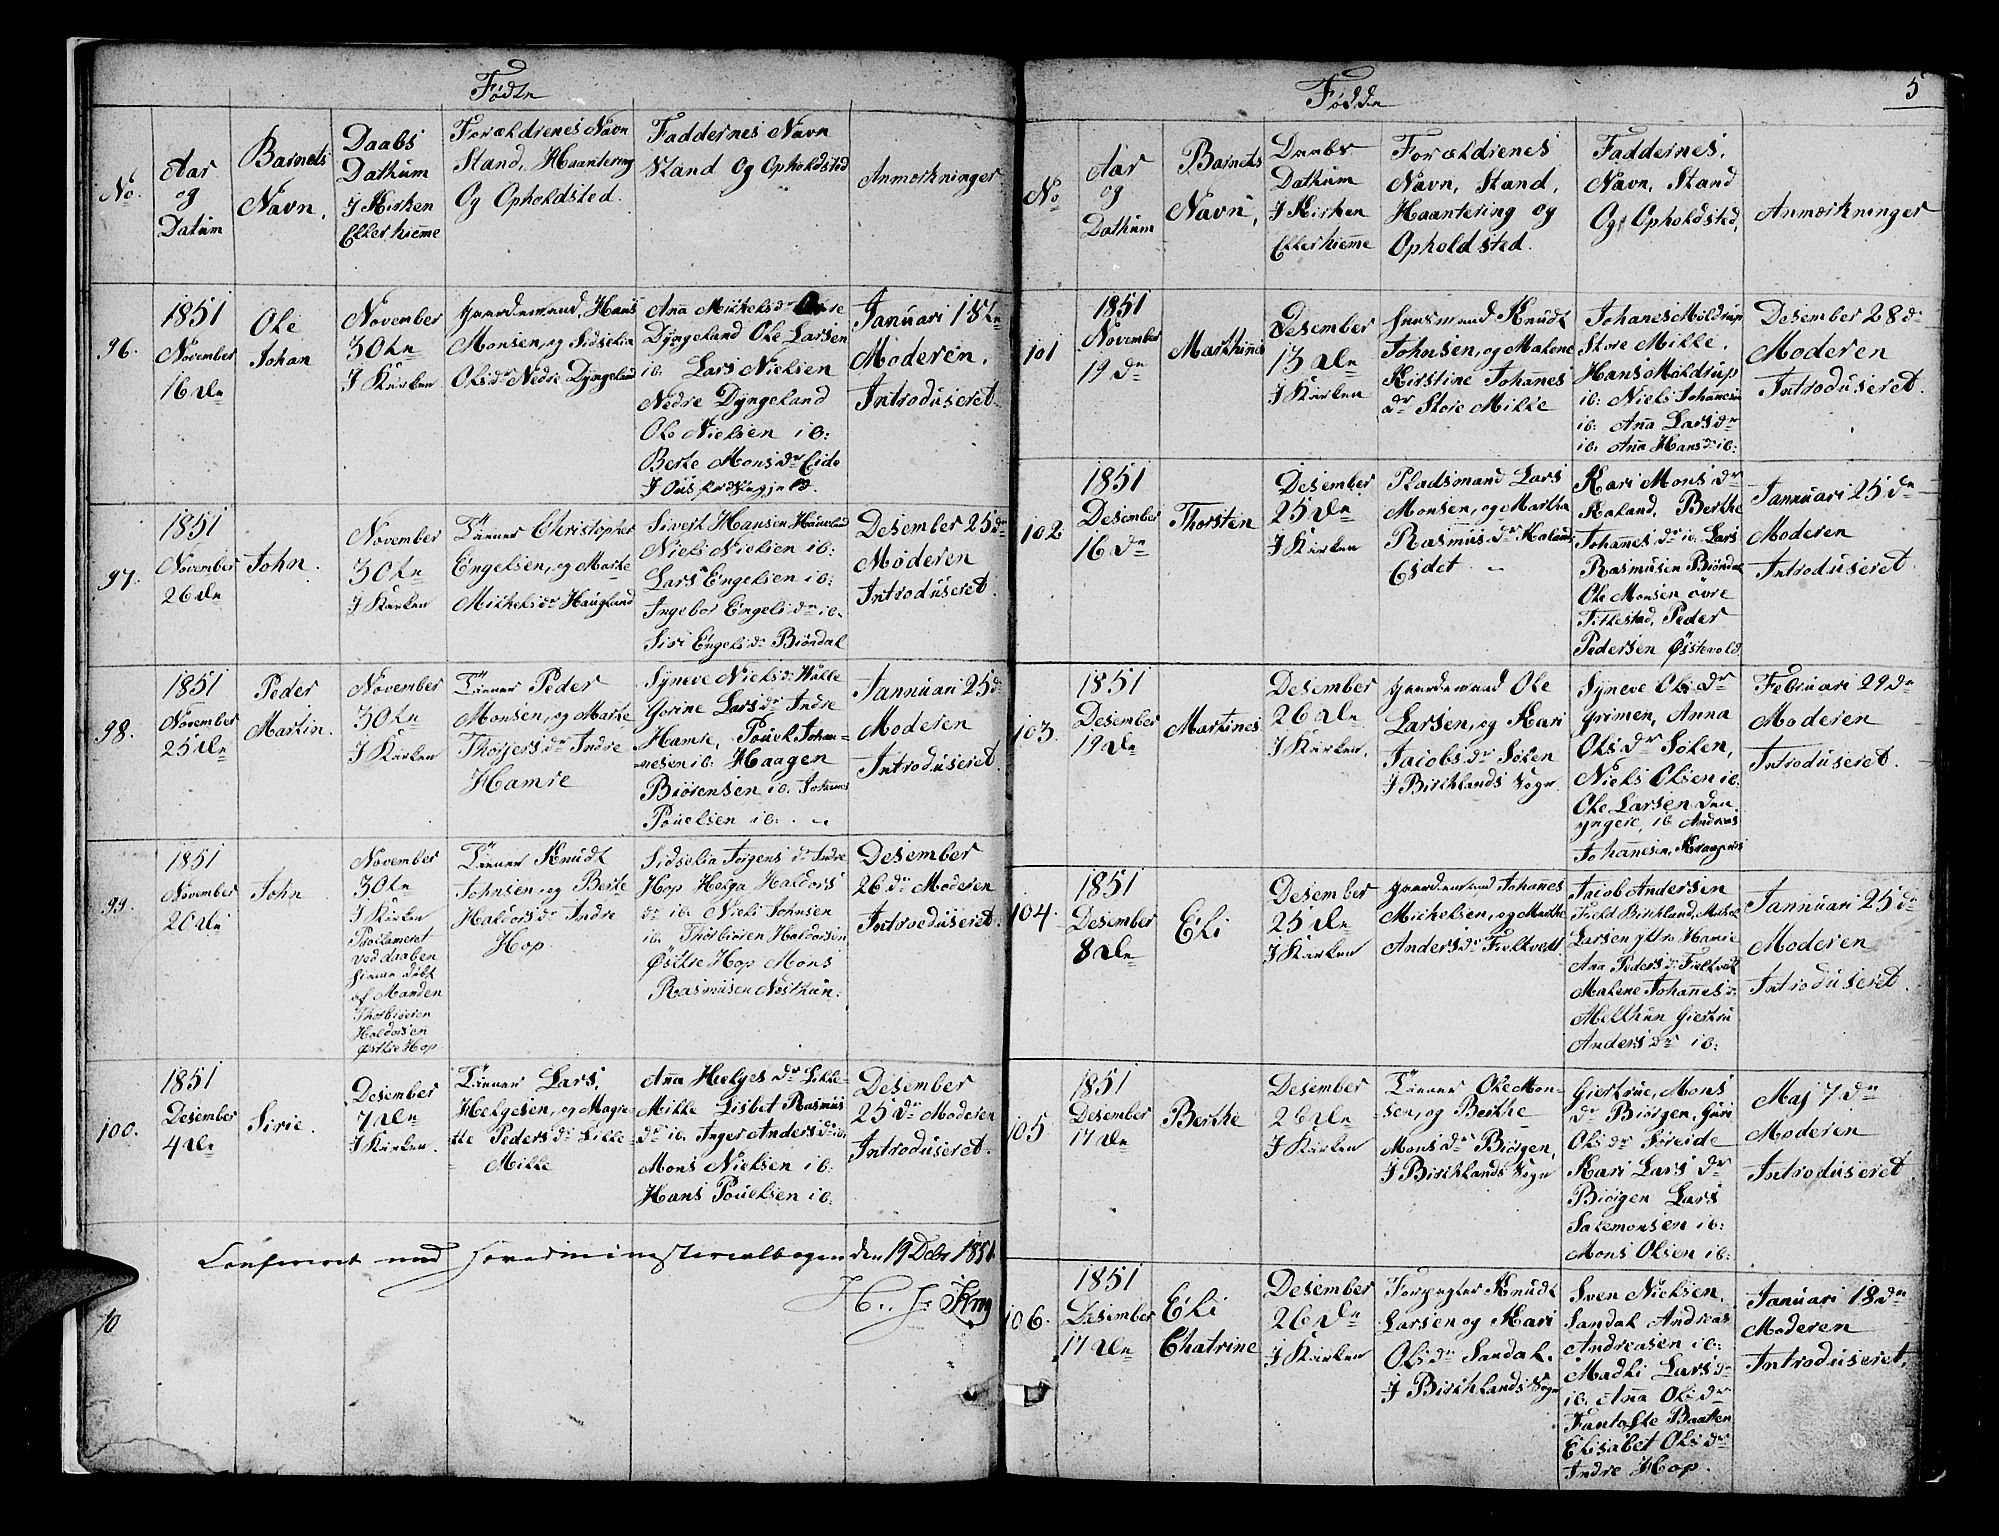 Fødte
No.
Aar
og
Datum
Barnets
Navn.
Daabs
Dathum
I Kirken
Eller hieme
Forældrenes Navn
Stand, Haantering
Og Opholdsted.
Faddernes Navn
Stand Og Opholdsted
Anmerkninger
96.
1851
November
16 de
Ole
Johan
November
30te
I Kirken
Gaardemand, Hans
Monsen, og Sidselia
Olsdr Nedre Dÿngeland
Ana Mikkelsdr
Dÿngeland Ole Larsen
ib: Lars Nielsen
Nedre Dÿngeland
Ole Nielsen ib:
Berte Monsdr Eide
I
Januari 18de
Moderen.
Introduseret.
97.
1851
November
26 de
John.
November
30te
I Kirken
Tienner Christopher
Engelsen, og Marte
Mikkelsdr Haugland
Sivert Hansen Haugland
Niels Nielsen ib:
Lars Engelsen ib:
Ingebor Engelsdr ib.
Siri Engelsdr Biöndal
Desember 25 de
Moderen
Introduseret.
98.
1851
November
25 de
Peder
Martin.
November
30te
I Kirken
Tienner Peder
Monsen, og Marte
Thorgersdr Indre
Hamre
Sÿneve Nielsdr
Gorine Larsdr Indre
Hamre, Pouel Johan-
nesen ib: Haagen
Biörensen ib. Johanes
Pouelsen ib:
Jannuari 25 d
Moderen
Introduseret.
99.
1851
November
20 de
John
November
30te
I Kirken
Proclameret
ved daaben
hieme döbt
af Manden
Thorbiören
Haldorsen
Østtre Hop
Tienner Knudt
Johnsen, og Berte
Haldorsdr Indre
Hop.
Sidselia Jørgensdr Indre
Hop Helga Haldors
dr ib. Niels Johnsen
ib. Thorbiören Haldorsen
Østtre Hop Mons
Rasmusen Nøsthun.
Desember
26 de Moderen
Introduseret.
100.
1851
Desember
4 de
Sirie.
Desember
7 de
I Kirken.
Tienner Lars,
Helgesen, og Magre-
tte Pedersdr Lille
Milke
Ana Helgesdr Lille-
Milke Lisbet Rasmus
dr ib. Inger Andersdr ib.
Mons Nielsen ib:
Hans Pouelsen ib:
Desember
25 de Moderen
Introduseret.
Confereret med Hovedministerialbogen den 19 Decbr 1851.
Fødde
5
No
Aar
og
Dathum
Barnets
Navn,
Daabs
Dathum
I Kirken
Eller hieme
Forældrenes
Navn, Stand,
Haantering og
Opholdsted.
Faddernes,
Navn, Stand
Og Opholdsted,
Anmærkninger
101
1851
November
19 de
Marthines
Desember
13 de
I Kirken
Huusmand Knudt
Johnsen, og Malene
Kirstine Johanes
dr Store Milke
Johanes Moldrup
Store Milke.
Hans Moldrup
ib: Niels Johanesen
ib: Ana Larsdr
ib. Ana Hansdr ib:
Desember 28 de
Moderen
Introduseret.
102
1851
Desember
16 de
Thorsten
Desember
25 de
I Kirken
Pladsmand Lars
Monsen, og Martha
Rasmusdr Kaland
Kari Monsdr
Kaland, Berthe
Johannesdr ib. Lars
Rasmusen Biöndal
Ole Monsen övre
Titlestad, Peder
Pedersen Østtevold
Jannuari 25 de
Moderen
Introduseret.
103.
1851
Desember
19 de
Martines
Desember
26 de
I Kirken.
Gaardemand Ole
Larsen, og Kari
Jacobsdr Solen
I Birchlands Sogn
Sÿneve Olsdr
Grimen, Anna
Olsdr Solen,
Niels Olsen ib:
Ole Larsen den
yngere, ib. Andreas
Johanesen,
Februari 29 de
Moderen
Introduseret.
104.
1851
Desember
8 de
Eli
Desember
25 de
I Kirken
Gaardemand Johanes
Mickelsen, og Marthe
Andersdr Fieltvett
Jacob Andersen
Field Birchland, Michel
Larsen Ytre Hamre
Ana Pedersdr Fieltvedt
Malene Johannesdr
Midthun Giertru
Andersdr ib:
Jannuari 25 de
Moderen
Introduseret.
105
1851
Desember
17 de
Berthe
Desember
26 de
I Kirken
Tienner Ole Mon-
sen, og Berthe
Monsdr Biörgen,
I Birchlands Sogn
Giertrue, Mons
dr Biörgen, Guri
Olsdr Søreide
Kari Larsdr
Biörgen Lars
Salemonsen ib:
Mons Olsen ib:
Maj 7 de
Moderen
Introduseret.
106.
1851
Desember
17 de
Eli
Chatrine
Desember
26 de
I Kirken
Forpagter Knudt
Larsen og Kari
Olsdr Sandal.
I Birchlands Sogn
Sven Nielsen,
Sandal Andreas
Andreasen ib:
Madli Larsdr
ib. Ana Olsdr
Fantofte Baatten
Elisabet Olsdr
Indre Hop.
Januari 18 de
Moderen
Introduseret.